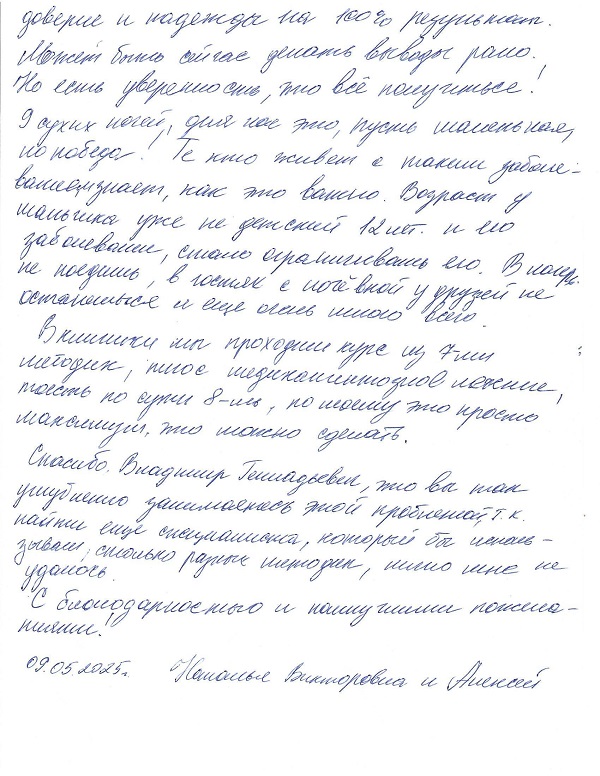 доверие и надежды на 100% результат.
Может быть сейчас делать выводы рано.
Но есть уверенность, что всё получиться!
9 сухих ночей, для нас это, пусть маленькая,
но победа! Те кто живет с таким заболе-
ванием, знает, как это важно. Возраст у
мальчика уже не детский 12 лет. и его
заболевание, стало ограничивать его. В лагерь
не поедешь, в гостях с ночёвкой у друзей не
останешься и еще очень много всего.
В клинике мы проходим курс из 7-ми
методик, плюс медикаментозное лечение,
тоесть по сути 8-мь, по моему это просто
максимум, что можно сделать.
Спасибо. Владимир Геннадьевич, что вы так
углубленно занимаетесь этой проблемой, т.к.
найти еще специалиста, который бы исполь-
зывал, столько разных методик, лично мне не
удалось.
С благодарностью и наилучшими пожела-
ниями!
09.05.2025г. Наталья Викторовна и Алексей